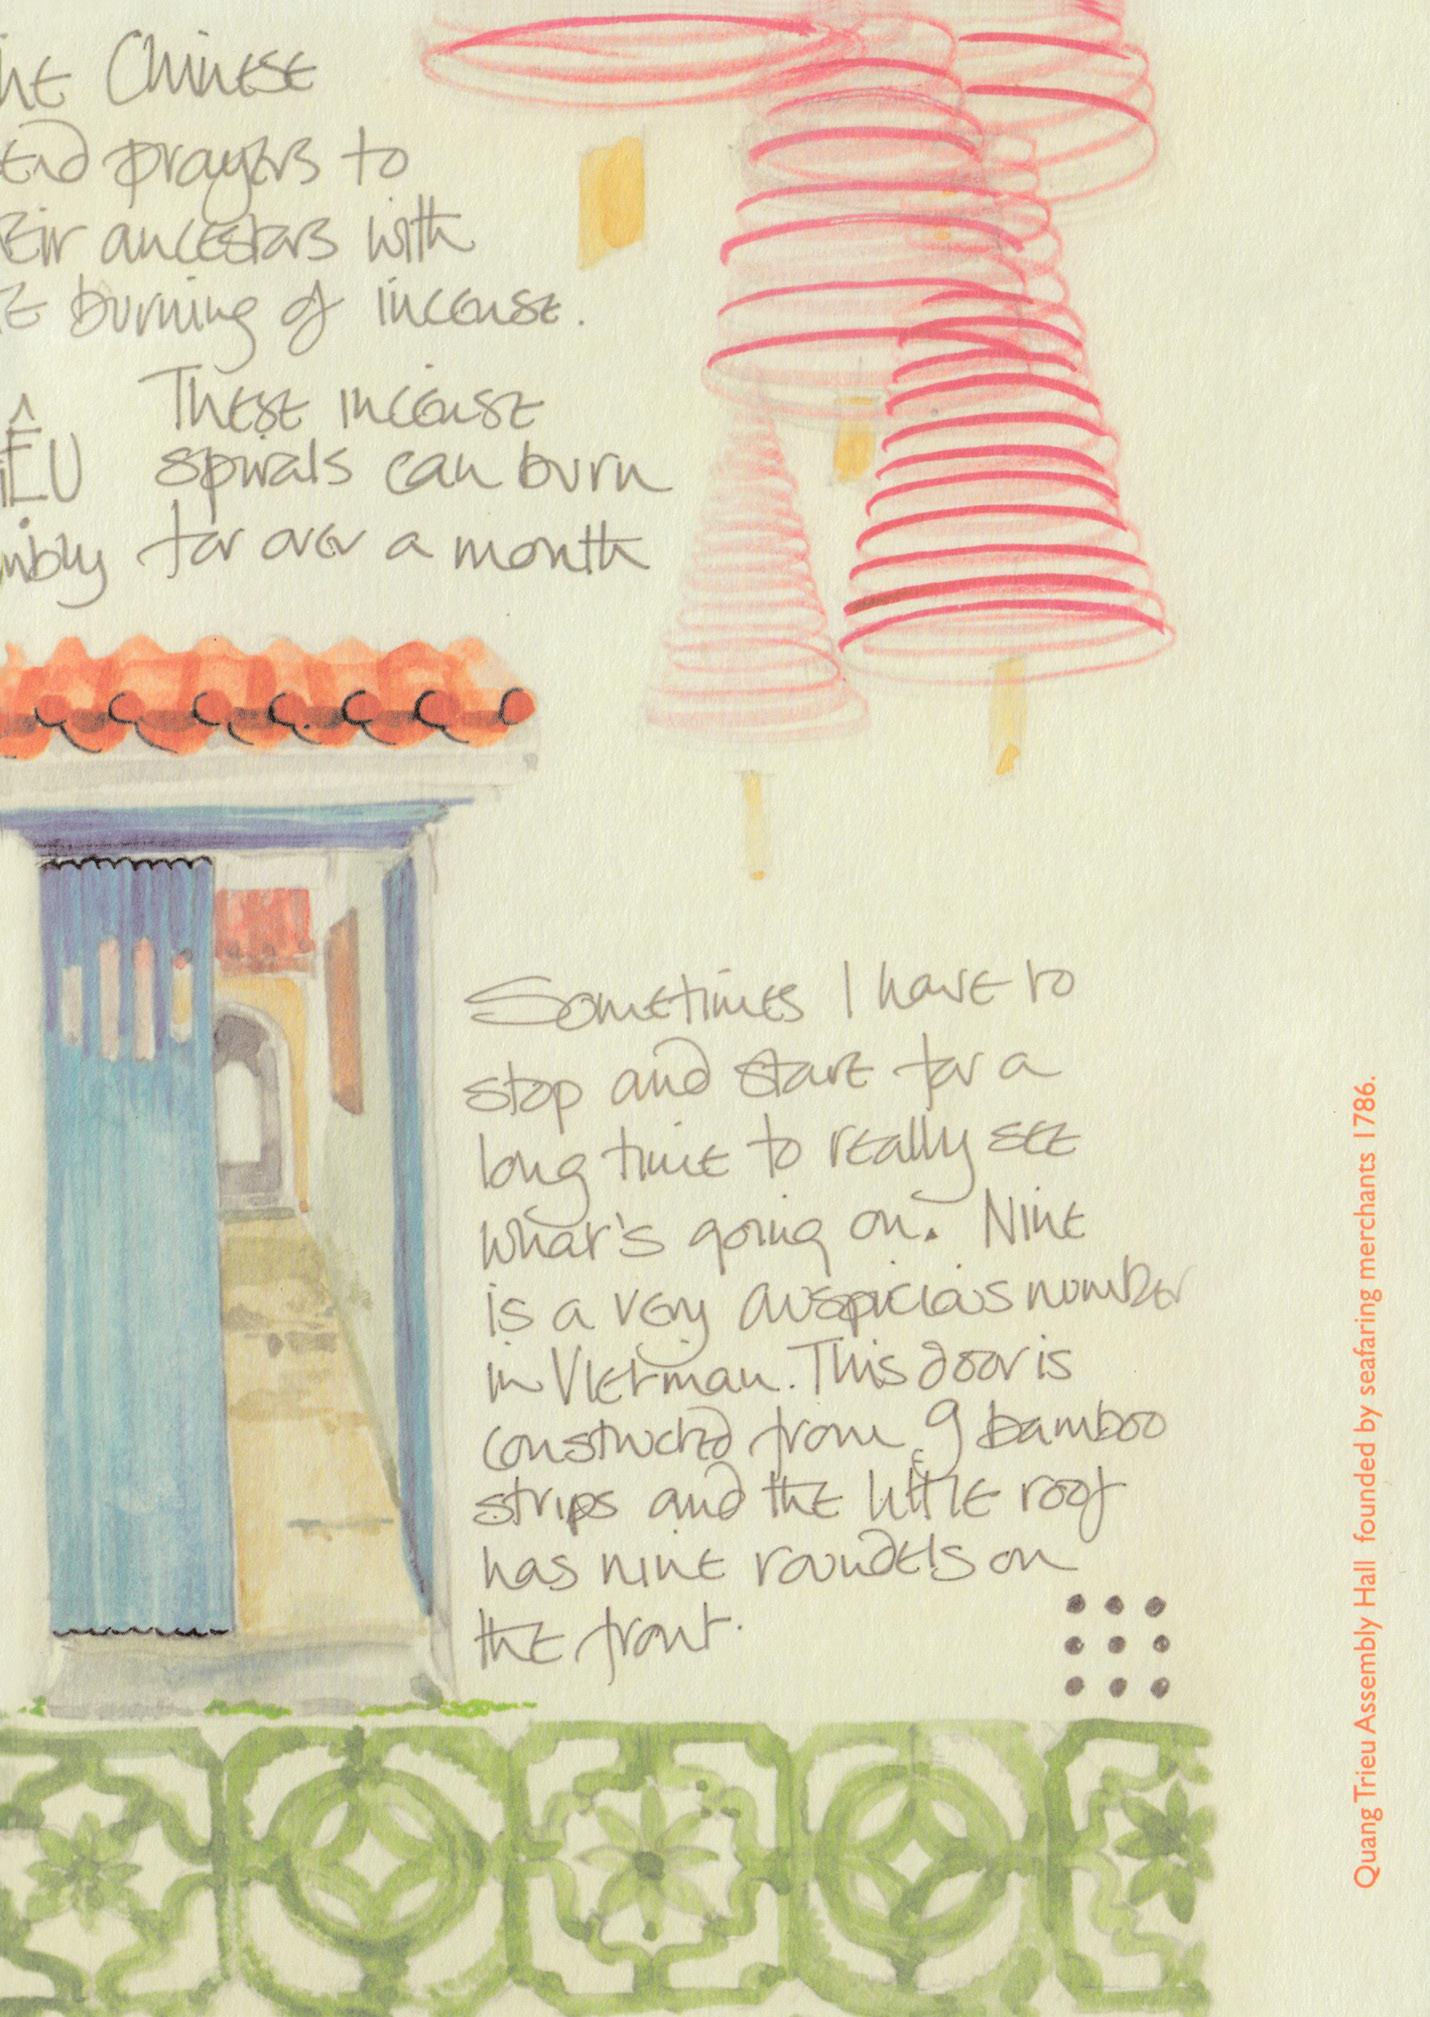 he Chinese
end prayers to
eir ancestors with
e burning of incense.
These incense
iÊU spirals can burn
mbly for over a month
Sometimes I have to
stop and stare for a
long time to really see
what's going on. Nine
is a very auspicious number
in Vietman. This door is
constructed from 9 bamboo
strips and the little roof
has nine roundels on
the front.
Quang Trieu Assembly Hall founded by seafaring merchants 1786.